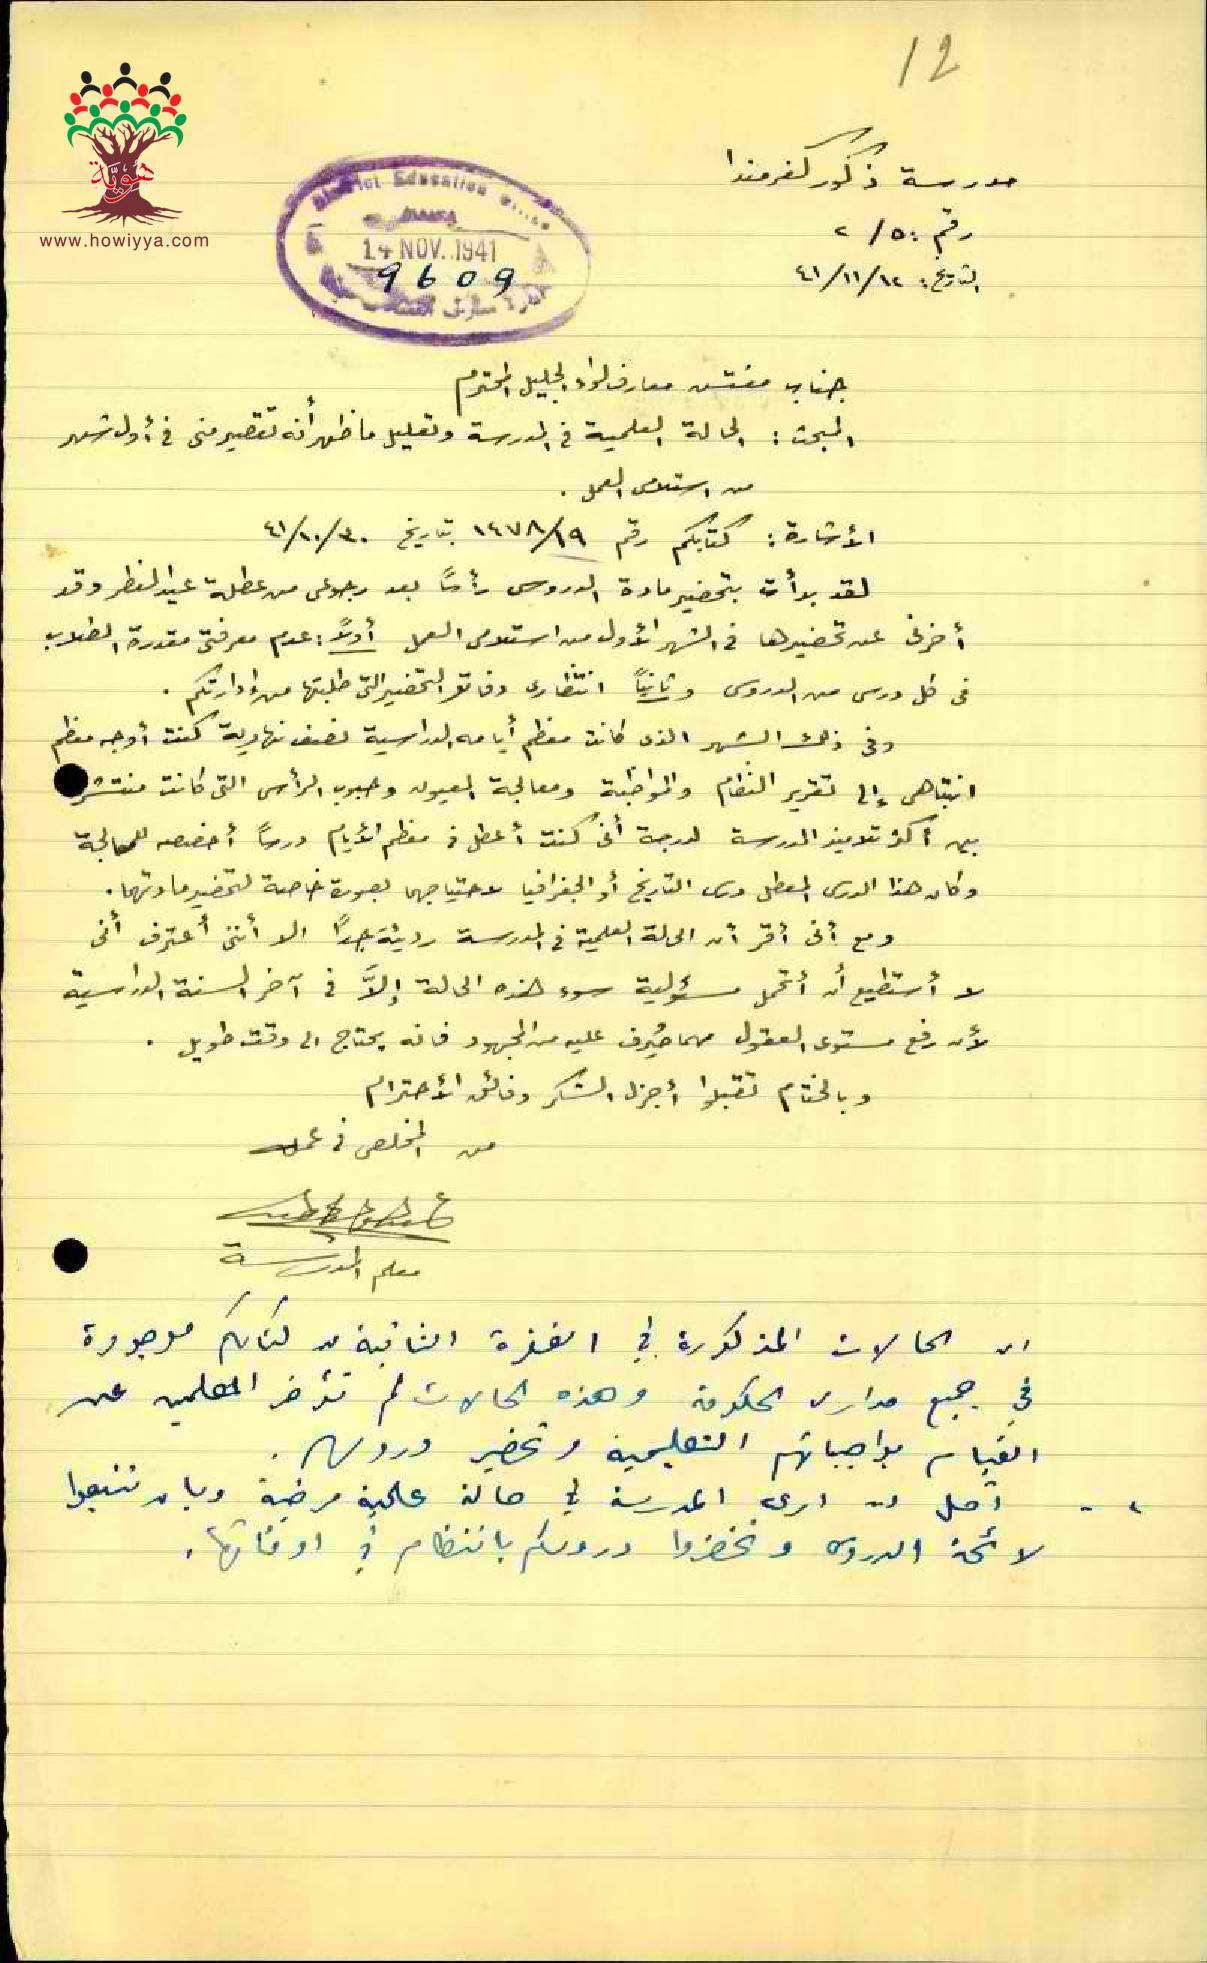 12
هوية
www.howiyya.com
District Education Office
14 NOV. 1941
9609
مدرسة ذكور كفرمندا
رقم: ٢/٥
التاريخ: ٤١/١١/١٢
جناب مفتش معارف لواء الجليل المحترم
المبحث: الحالة العلمية في المدرسة وتعليل ما ظهر أنه تقصير مني في أول شهر
من استلامي العمل.
الأشارة: كتابكم رقم ١٤٧٨/١٩ بتاريخ ٤١/١٠/٣٠
لقد بدأت بتحضير مادة الدروس رأساً بعد رجوعي من عطلة عيد الفطر وقد
أخرني عن تحضيرها في الشهر الأول من استلامي العمل أولاً: عدم معرفتي مقدرة الطلاب
في كل درس من الدروس وثانياً انتظاري دفاتر التحضير التي طلبتها من إدارتكم.
وفي ذلك الشهر الذي كانت معظم أيامه الدراسية نصف نهارية كنت أوجه معظم
انتباهي إلى تقرير النظام والمواظبة ومعالجة العيون وحبوب الرأس التي كانت منتشرة
بين أكثر تلاميذ المدرسة لدرجة أني كنت أعطل في معظم الأيام درساً أخصصه للمعالجة
وكان هذا الدرس المعطل درس التاريخ أو الجغرافيا لاحتياجهما بصورة خاصة لتحضير مادتهما.
ومع أني أقر أن الحالة العلمية في المدرسة رديئة جداً الا أنني أعترف أني
لا أستطيع أن أتحمل مسؤولية سوء هذه الحالة إلاَّ في آخر السنة الدراسية
لأن رفع مستوى العقول مهما صُرف عليه من المجهود فانه يحتاج الى وقت طويل.
وبالختام تقبلوا أجزل الشكر وفائق الأحترام
من المخلص في عمله
معلم المدرسة
ان الحالات المذكورة في الفقرة الثانية من كتابكم موجودة
في جميع مدارس الحكومة وهذه الحالات لم تؤخر المعلمين عن
القيام بواجباتهم التعليمية وتحضير دروسهم.
٢ - آمل ان ارى المدرسة في حالة علمية مرضية وبان تتبعوا
لائحة الدروس وتحضروا دروسكم بانتظام في اوقاتها.